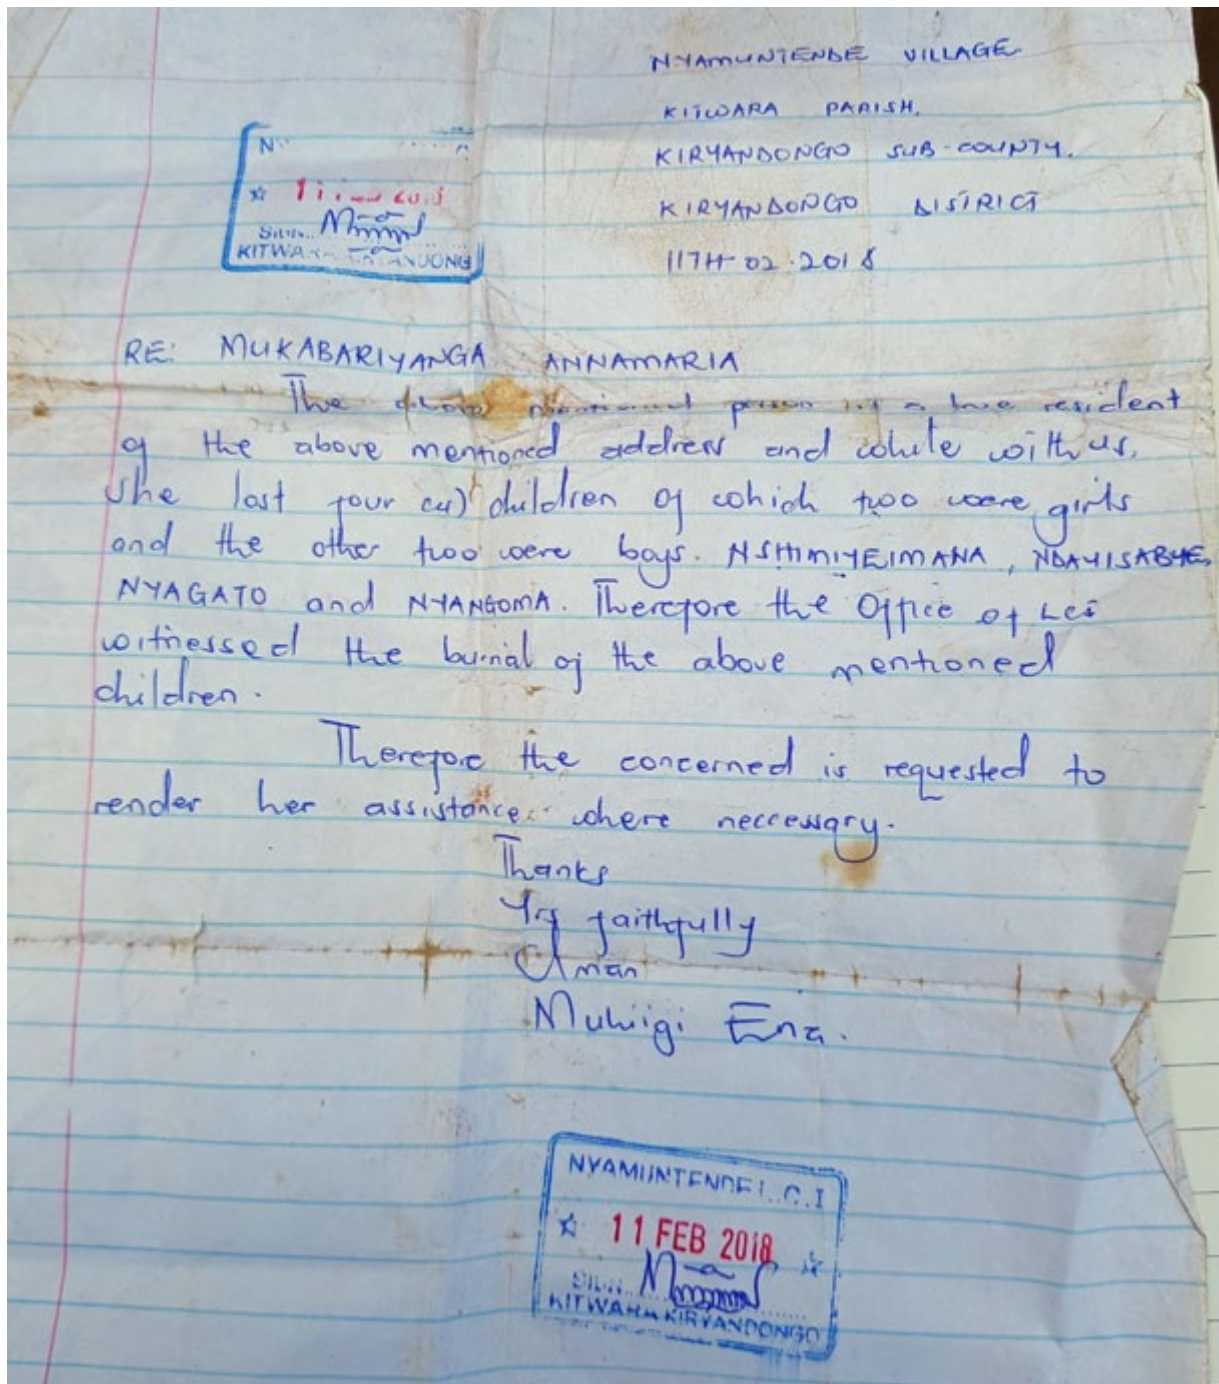 NYAMUNTENDE VILLAGE
KITWARA PARISH.
KIRYANDONGO SUB-COUNTY.
KIRYANDONGO DISTRICT
11TH-02-2018
N
SIGN
KITWARA KIRYANDONG
RE: MUKABARIYANGA ANNAMARIA
The above mentioned person is a true resident
of the above mentioned address and while with us,
she lost four (4) children of which two were girls
and the other two were boys. NSHIMIYEIMANA, NDAYISABYE,
NYAGATO and NYANGOMA. Therefore the Office of LCI
witnessed the burial of the above mentioned
children.
Therefore the concerned is requested to
render her assistance where neccessary.
Thanks
Yrs faithfully
Cman
Muhiigi Eria.
NYAMUNTENDE L.C.I
11 FEB 2018
SIGN
KITWARA KIRYANDONGO